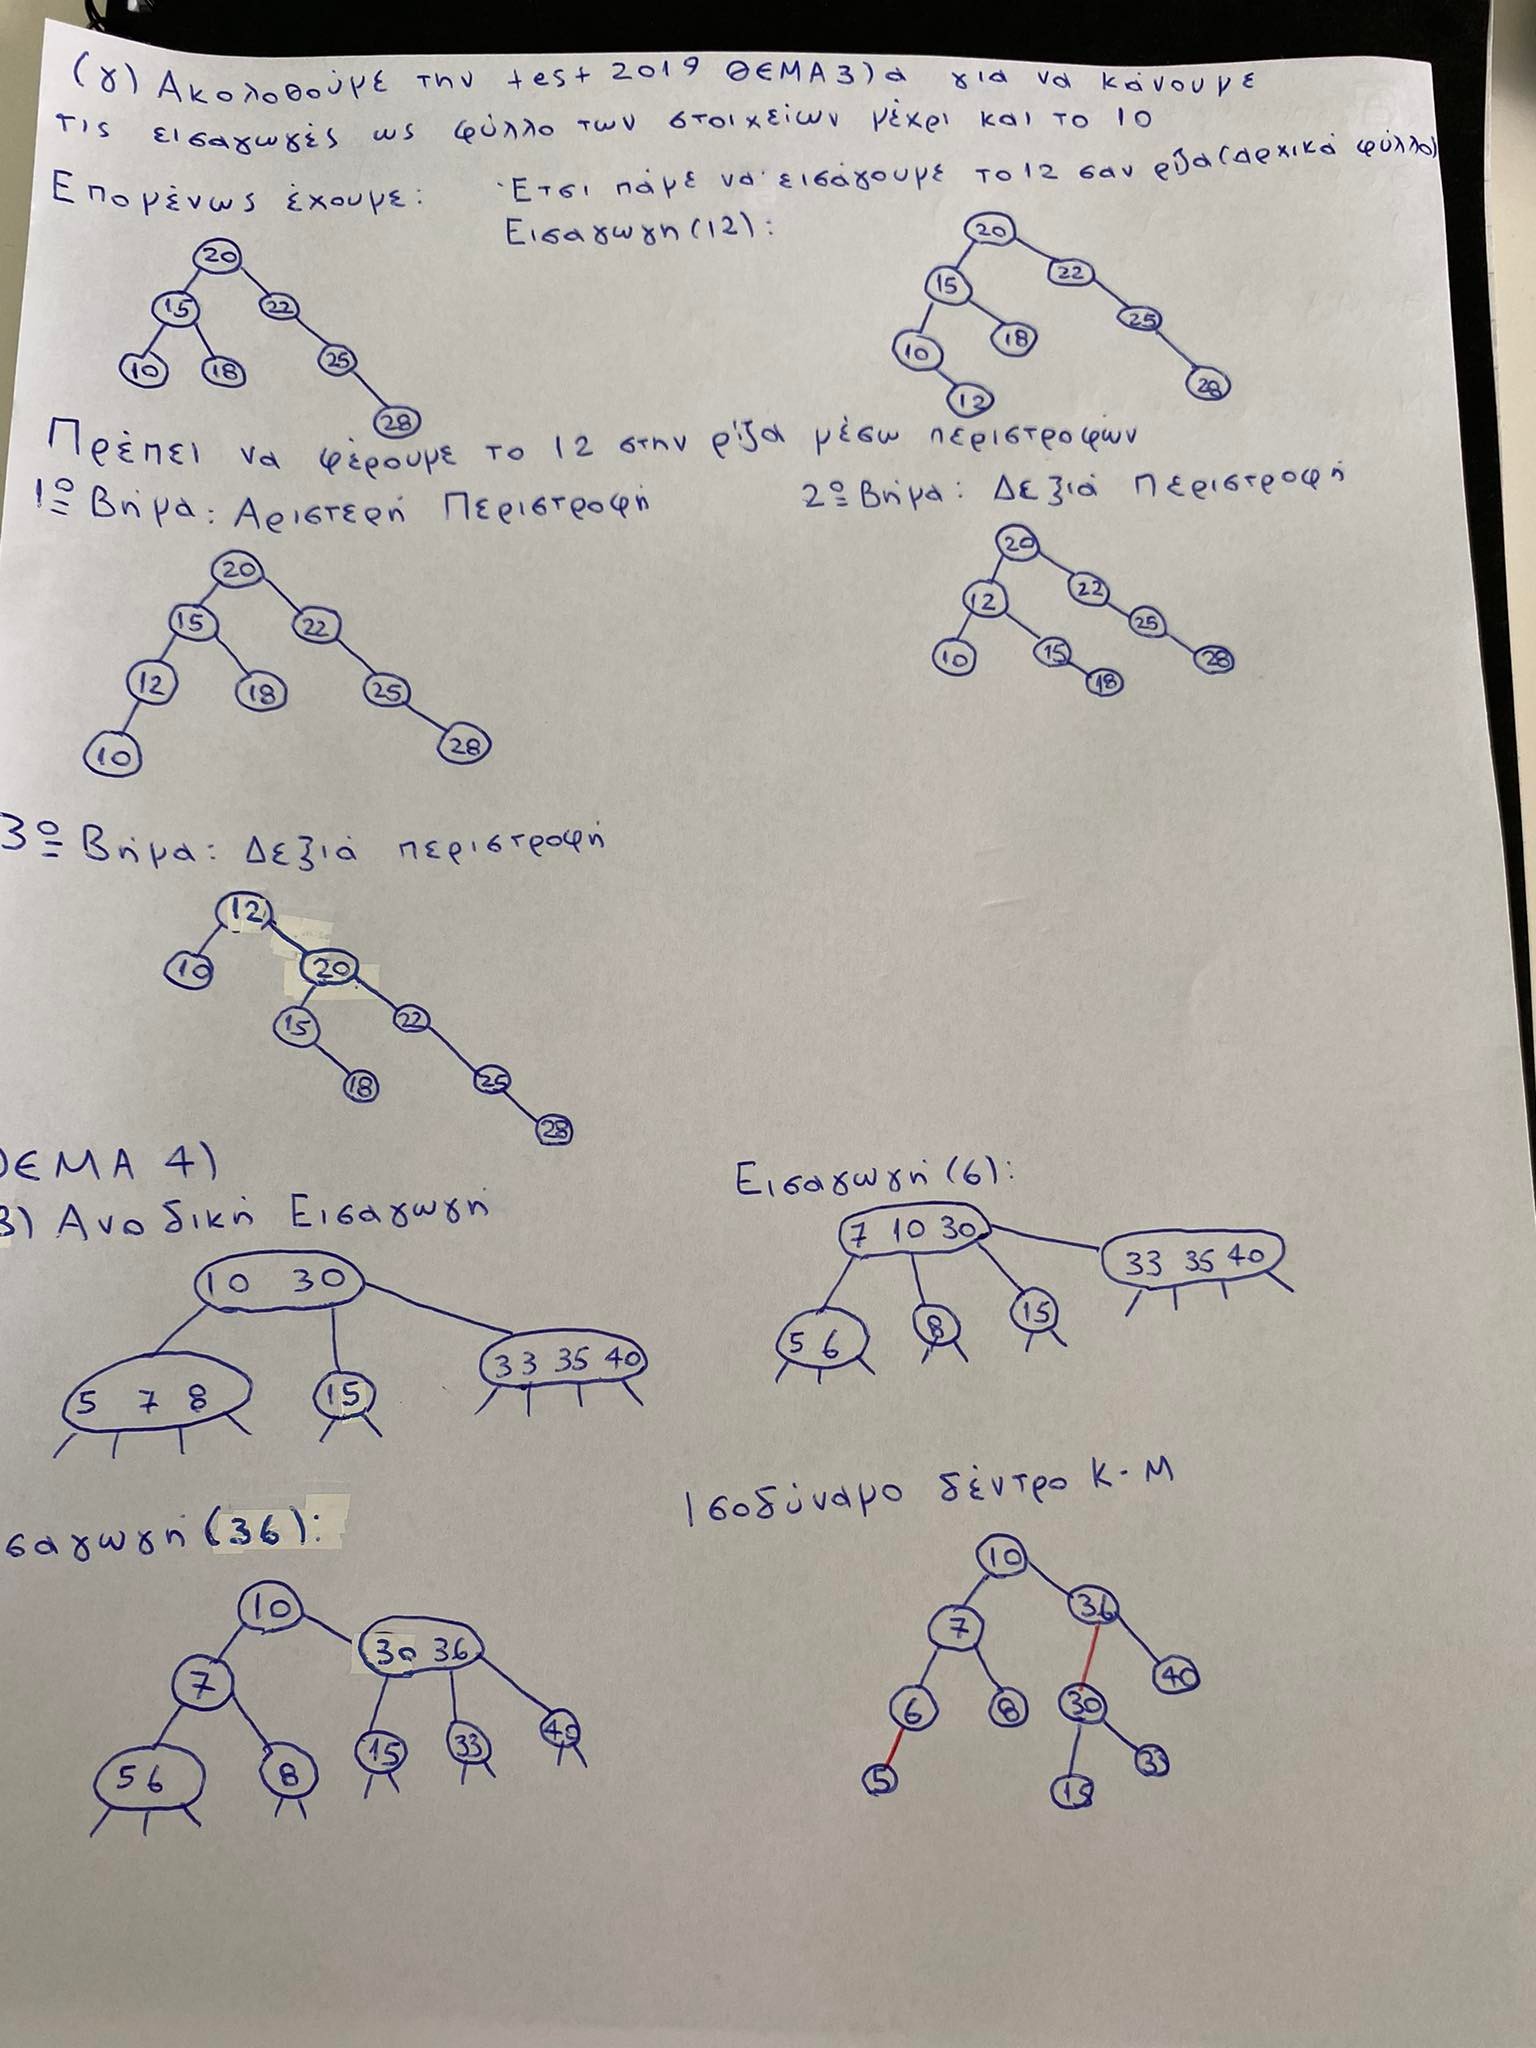 (γ) Ακολοθούμε την test 2019 ΘΕΜΑ3)α για να κάνουμε
τις εισαγωγές ως φύλλο των στοιχείων μέχρι και το 10
Επομένως έχουμε:
Έτσι πάμε να εισάγουμε το 12 σαν ρίζα(αρχικά φύλλο)
Εισαγωγη(12):
20
15 22
10 18 25
28
20
15 22
10 18 25
12 28
Πρέπει να φέρουμε το 12 στην ρίζα μέσω περιστροφών
1ο Βήμα: Αριστερή Περιστροφή
20
15 22
12 18 25
10 28
2ο Βήμα: Δεξιά Περιστροφή
20
12 22
10 15 25
18 28
3ο Βήμα: Δεξιά περιστροφή
12
10 20
15 22
18 25
28
ΘΕΜΑ 4)
β) Ανοδική Εισαγωγή
10 30
5 7 8 15 33 35 40
Εισαγωγή(6):
7 10 30
5 6 8 15 33 35 40
σαγωγή(36):
10
7 30 36
5 6 8 15 33 40
Ισοδύναμο δέντρο Κ-Μ
10
7 36
6 8 30 40
5 15 33